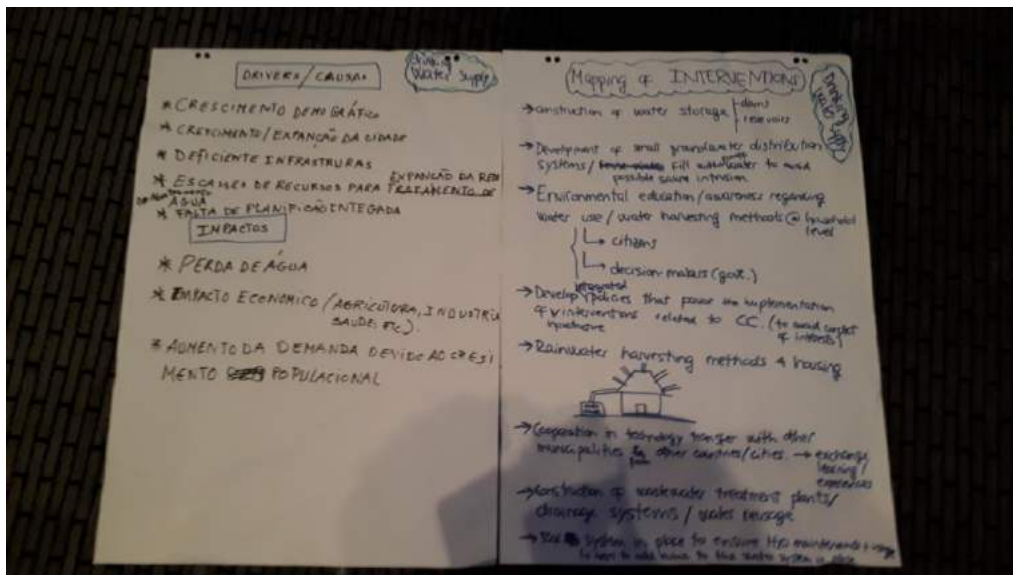 DRIVERS/CAUSAS
drinking
Water Supply
* CRESCIMENTO DEMOGRÁFICO
* CRESCIMENTO/EXPANÇÃO DA CIDADE
* DEFICIENTE INFRASTRURAS
EXPANÇÃO DA REDE
* ESCASSES DE RECURSOS PARA TRATAMENTO DE
ÁGUA
* FALTA DE PLANIFICÃO INTEGADA
IMPACTOS
* PERDA DE ÁGUA
* IMPACTO ECONÓMICO/AGRICUTURA, INDUSTRIA
SAUDE, ETC).
* AUMENTO DA DEMANDA DEVIDO AO CRESI
MENTO POPULACIONAL
Mapping of INTERVENTIONS
Drinking
water supply
→ construction of water storage
dams
reservoirs
→ Development of small groundwater distribution
systems/ Fill with water to avoid
possible saline intrusion
→ Environmental education/awareness regarding
water use/water harvesting methods @ household
level
→ citizens
→ decision-makers (govt.)
integrated
→ Develop policies that the implementation
of interventions related to CC. (to avoid conflict
of interests)
→ Rainwater harvesting methods 4 housing
→ Cooperation in technology transfer with other
municipalities other countries/cities. → exchange
learning/
experiences
→ Construction of wastewater treatment plants/
drainage systems/water reusage
→ system in place to ensure H₂O maintenance & usage